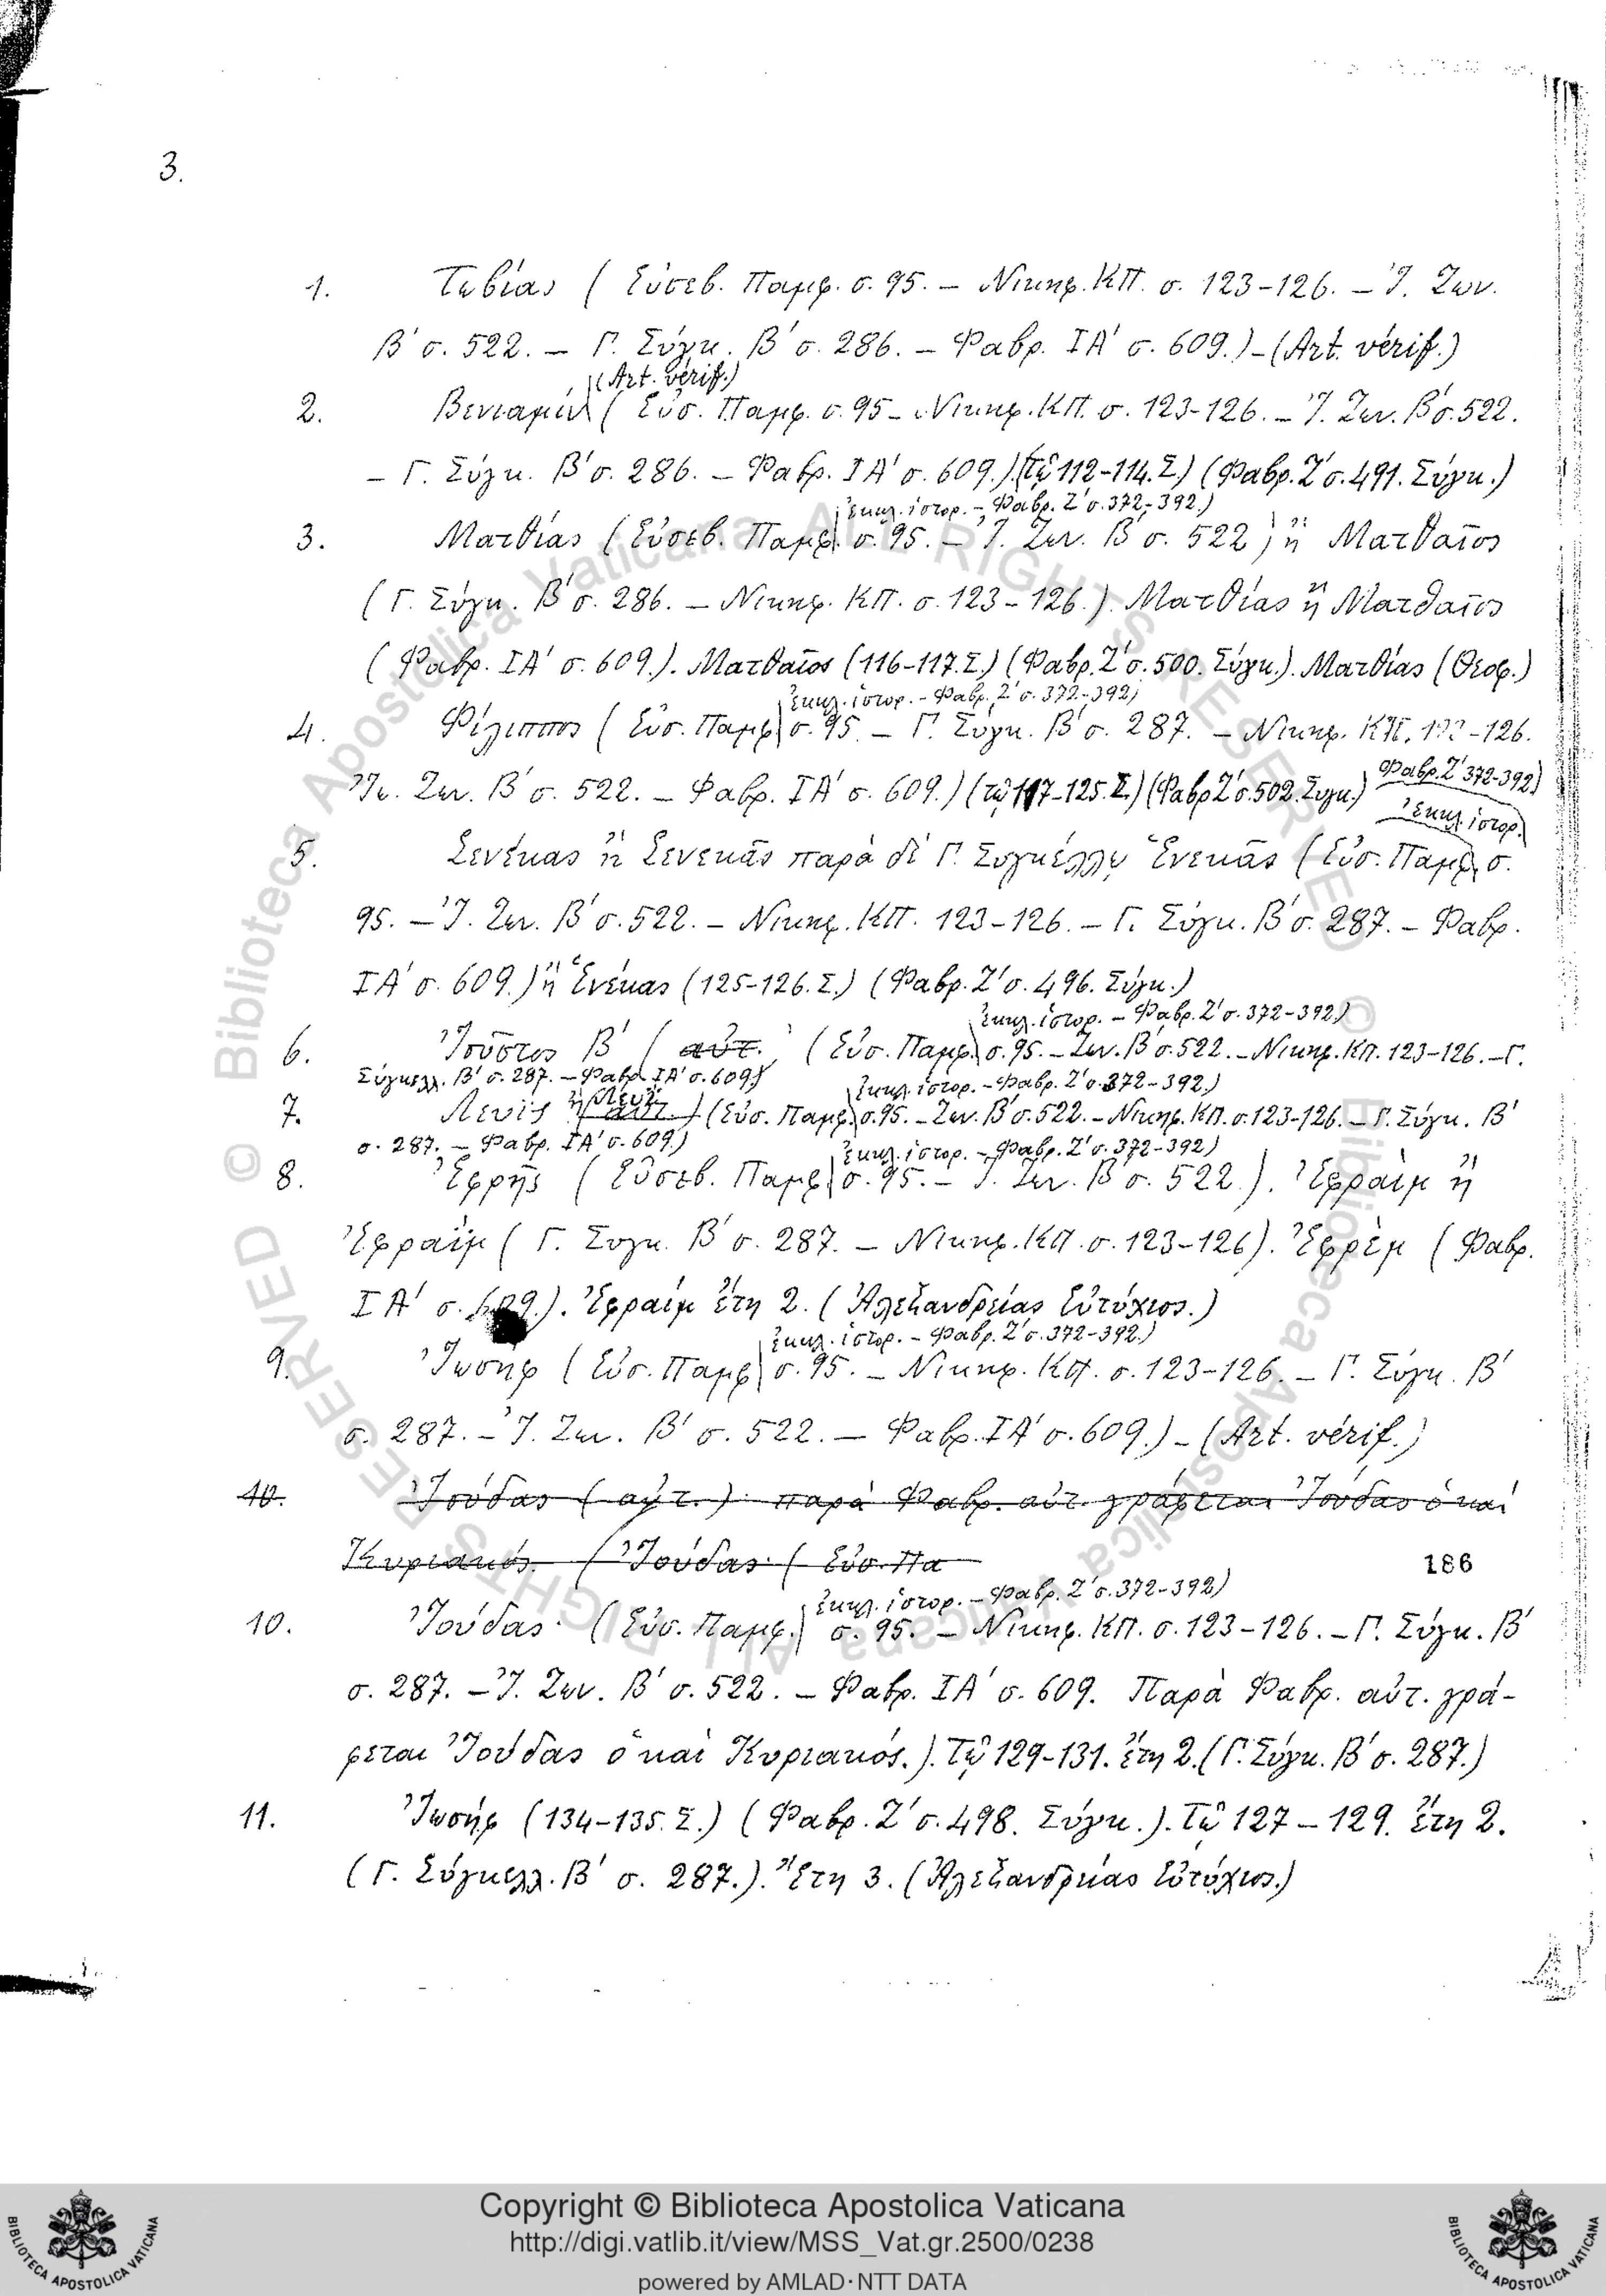 3.
1. Τωβίας ( Εὐσεβ. Παμφ. σ. 95. – Νικηφ. ΚΠ. σ. 123–126. – Ἰ. Ζων.
Β΄ σ. 522. – Γ. Σύγκ. Β΄ σ. 286. – Φαβρ. ΙΑ΄ σ. 609.) – (Art. vérif.)
(Art. vérif.)
2. Βενιαμὶν ( Εὐσ. Παμφ. σ. 95 – Νικηφ. ΚΠ. σ. 123–126. – Ἰ. Ζων. Β΄ σ. 522.
– Γ. Σύγκ. Β΄ σ. 286. – Φαβρ. ΙΑ΄ σ. 609.) (τῷ 112–114. Σ.) (Φαβρ. Ζ΄ σ. 491. Σύγκ.)
ἐκκλ. ἱστορ. – Φαβρ. Ζ΄ σ. 372–392.)
3. Ματθίας ( Εὐσεβ. Παμφ. σ. 95. – Ἰ. Ζων. Β΄ σ. 522 ) ἢ Ματθαῖος
( Γ. Σύγκ. Β΄ σ. 286. – Νικηφ. ΚΠ. σ. 123–126. ). Ματθίας ἢ Ματθαῖος
( Φαβρ. ΙΑ΄ σ. 609.). Ματθαῖος (116–117. Σ.) (Φαβρ. Ζ΄ σ. 500. Σύγκ.). Ματθίας (Θεοφ.)
ἐκκλ. ἱστορ. – Φαβρ. Ζ΄ σ. 372–392)
4. Φίλιππος ( Εὐσ. Παμφ. σ. 95. – Γ. Σύγκ. Β΄ σ. 287. – Νικηφ. ΚΠ. 123–126.
Ἰω. Ζων. Β΄ σ. 522. – Φαβρ. ΙΑ΄ σ. 609.) (τῷ 117–125. Σ.) (Φαβρ. Ζ΄ σ. 502. Συγκ.)
Φαβρ. Ζ΄ 372–392)
ἐκκλ. ἱστορ.
5. Σενέκας ἢ Σενεκᾶς παρὰ δὲ Γ. Συγκέλλῳ Ἐνεκᾶς ( Εὐσ. Παμφ. σ.
95. – Ἰ. Ζων. Β΄ σ. 522. – Νικηφ. ΚΠ. 123–126. – Γ. Σύγκ. Β΄ σ. 287. – Φαβρ.
ΙΑ΄ σ. 609.) ἢ Ἑνέκας (125–126. Σ.) (Φαβρ. Ζ΄ σ. 496. Σύγκ.)
ἐκκλ. ἱστορ. – Φαβρ. Ζ΄ σ. 372–392)
6. Ἰοῦστος Β΄ ( αὐτ. ( Εὐσ. Παμφ. σ. 95. – Ζων. Β΄ σ. 522. – Νικηφ. ΚΠ. 123–126. – Γ.
Σύγκελλ. Β΄ σ. 287. – Φαβρ. ΙΑ΄ σ. 609)
ἐκκλ. ἱστορ. – Φαβρ. Ζ΄ σ. 372–392.)
7. Λευῒς ἢ Λευῒ αὐτ. ) (Εὐσ. Παμφ. σ. 95. – Ζων. Β΄ σ. 522. – Νικηφ. ΚΠ. σ. 123–126. – Γ. Σύγκ. Β΄
σ. 287. – Φαβρ. ΙΑ΄ σ. 609.)
ἐκκλ. ἱστορ. – Φαβρ. Ζ΄ σ. 372–392)
8. Ἐφρῆς ( Εὐσεβ. Παμφ. σ. 95. – Ἰ. Ζων. Β΄ σ. 522. ). Ἐφραὶμ ἢ
Ἐφραΐμ ( Γ. Συγκ. Β΄ σ. 287. – Νικηφ. ΚΠ. σ. 123–126). Ἐφρὲμ ( Φαβρ.
ΙΑ΄ σ. 609.). Ἐφραίμ ἔτη 2. ( Ἀλεξανδρείας Εὐτύχιος.)
ἐκκλ. ἱστορ. – Φαβρ. Ζ΄ σ. 372–392.)
9. Ἰωσὴφ ( Εὐσ. Παμφ. σ. 95. – Νικηφ. ΚΠ. σ. 123–126. – Γ. Σύγκ. Β΄
σ. 287. – Ἰ. Ζων. Β΄ σ. 522. – Φαβρ. ΙΑ΄ σ. 609.) – (Art. vérif.)
10. Ἰούδας ( αὐτ. ) παρὰ Φαβρ. αὐτ. γράφεται Ἰούδας ὁ καὶ
Κυριακός. ( Ἰούδας ( Εὐσ. Πα
186
ἐκκλ. ἱστορ. – Φαβρ. Ζ΄ σ. 372–392)
10. Ἰούδας ( Εὐσ. Παμφ. σ. 95. – Νικηφ. ΚΠ. σ. 123–126. – Γ. Σύγκ. Β΄
σ. 287. – Ἰ. Ζων. Β΄ σ. 522. – Φαβρ. ΙΑ΄ σ. 609. Παρὰ Φαβρ. αὐτ. γρά-
φεται Ἰούδας ὁ καὶ Κυριακός.). Τῷ 129–131. ἔτη 2. ( Γ. Σύγκ. Β΄ σ. 287.)
11. Ἰωσὴφ (134–135. Σ.) ( Φαβρ. Ζ΄ σ. 498. Σύγκ. ). Τῷ 127 – 129. ἔτη 2.
( Γ. Σύγκελλ. Β΄ σ. 287.). Ἔτη 3. ( Ἀλεξανδρείας Εὐτύχιος.)
© Biblioteca Apostolica Vaticana ALL RIGHTS RESERVED
© Biblioteca Apostolica Vaticana ALL RIGHTS RESERVED
Copyright © Biblioteca Apostolica Vaticana
http://digi.vatlib.it/view/MSS_Vat.gr.2500/0238
powered by AMLAD·NTT DATA
BIBLIOTECA APOSTOLICA VATICANA
BIBLIOTECA APOSTOLICA VATICANA